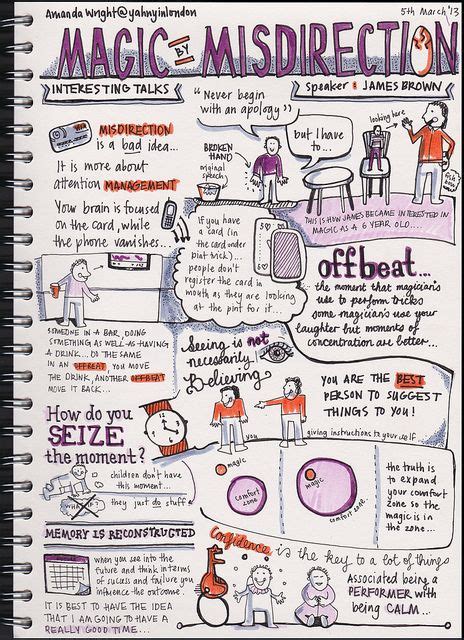 Amanda Wright@yahnyinlondon
5th March '13
MAGIC BY MISDIRECTION
INTERESTING TALKS
speaker: JAMES BROWN
"Never begin
with an apology"
but I have
to...
looking here
MISDIRECTION
is a bad idea...
It is more about
attention MANAGEMENT
Your brain is focused
on the card, while
the phone vanishes...
BROKEN
HAND
original
speech
If you have
a card (in
the card under
pint trick)...
people don't
register the card in
mouth as they are looking
at the pint for it...
THIS IS HOW JAMES BECAME INTERESTED IN
MAGIC AS A 6 YEAR OLD...
offbeat...
the moment that magician's
use to perform tricks
some magician's use your
laughter but moments of
concentration are better...
SOMEONE IN A BAR, DOING
SOMETHING AS WELL AS HAVING
A DRINK... DO THE SAME
IN AN OFFBEAT YOU MOVE
THE DRINK, ANOTHER OFFBEAT
MOVE IT BACK...
Seeing is not
necessarily
Believing
YOU ARE THE BEST
PERSON TO SUGGEST
THINGS TO YOU!
you
giving instructions to yourself
How do you
SEIZE
the moment?
children don't have
this moment...
WHAT IF?
they just do stuff
magic
comfort
zone
magic
comfort zone
the truth is
to expand
your comfort
zone so the
magic is in
the zone...
MEMORY IS RECONSTRUCTED
when you see into the
future and think in terms
of success and failure you
influence the outcome.
IT IS BEST TO HAVE THE IDEA
THAT I AM GOING TO HAVE A
REALLY GOOD TIME...
Confidence is the key to a lot of things
Associated being a
PERFORMER with
being CALM...